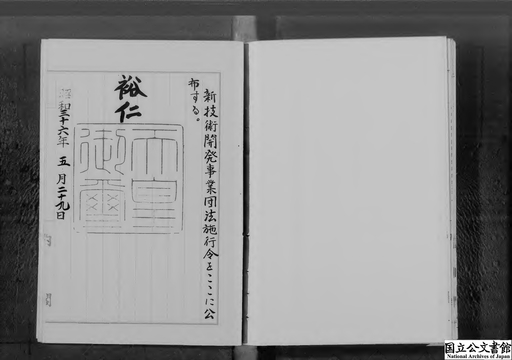 新技術開発事業団法施行令をここに公
布する。
裕仁
天皇
御璽
昭和三十六年五月二十九日
国立公文書館
National Archives of Japan